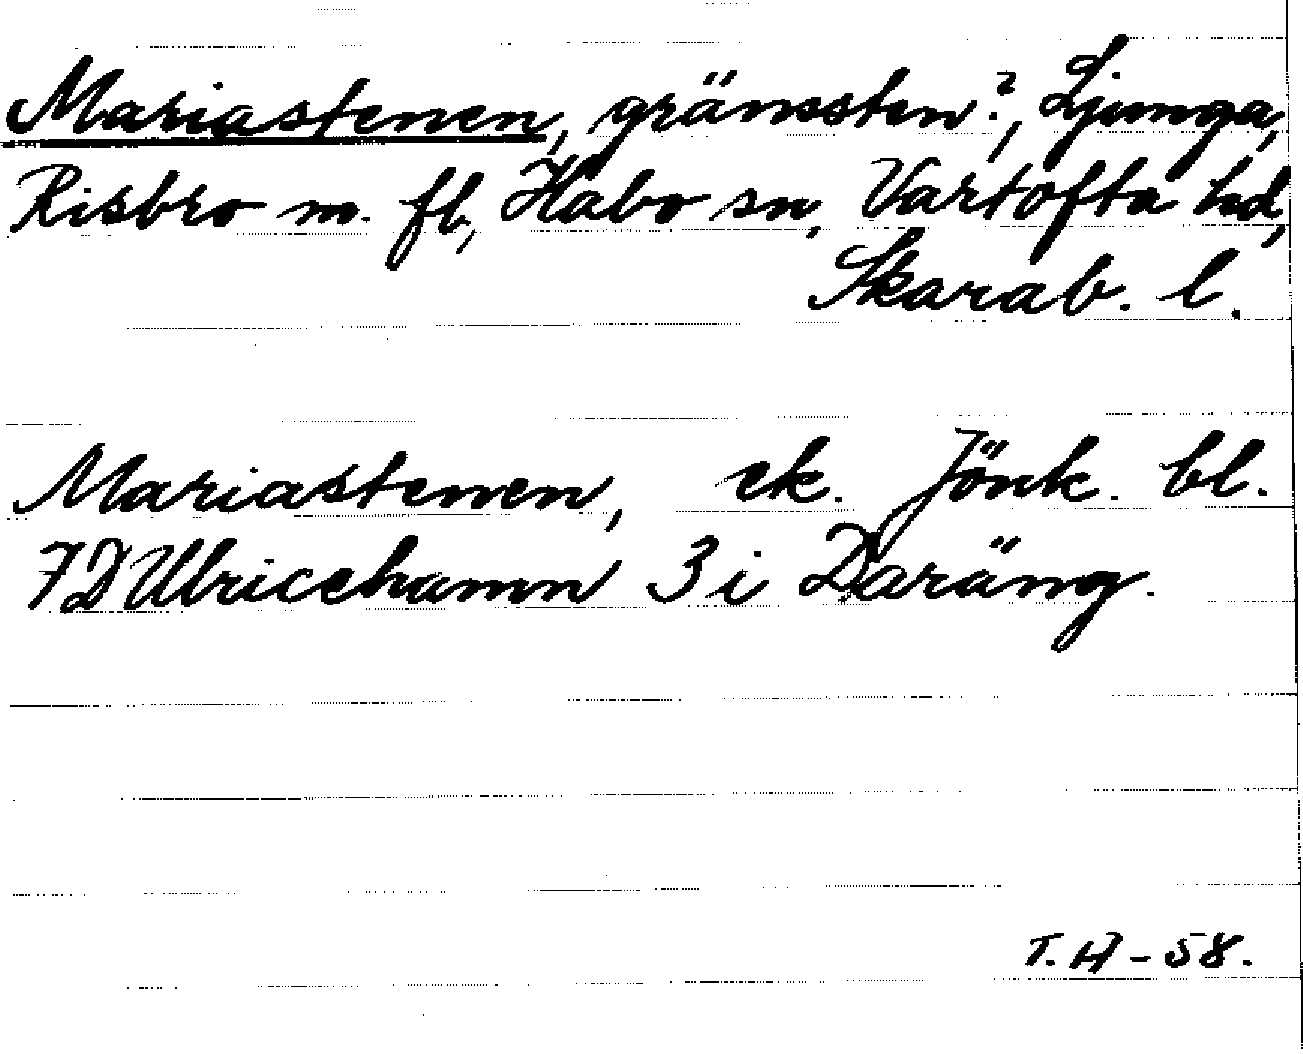 Mariastenen, gränssten?, Ljunga,
Risbro m. fl., Habo sn, Vartofta hd,
Skarab. l.
Mariastenen, ek. Jönk. bl.
7D Ulricehamn 3 i Daräng.
T. H - 58.